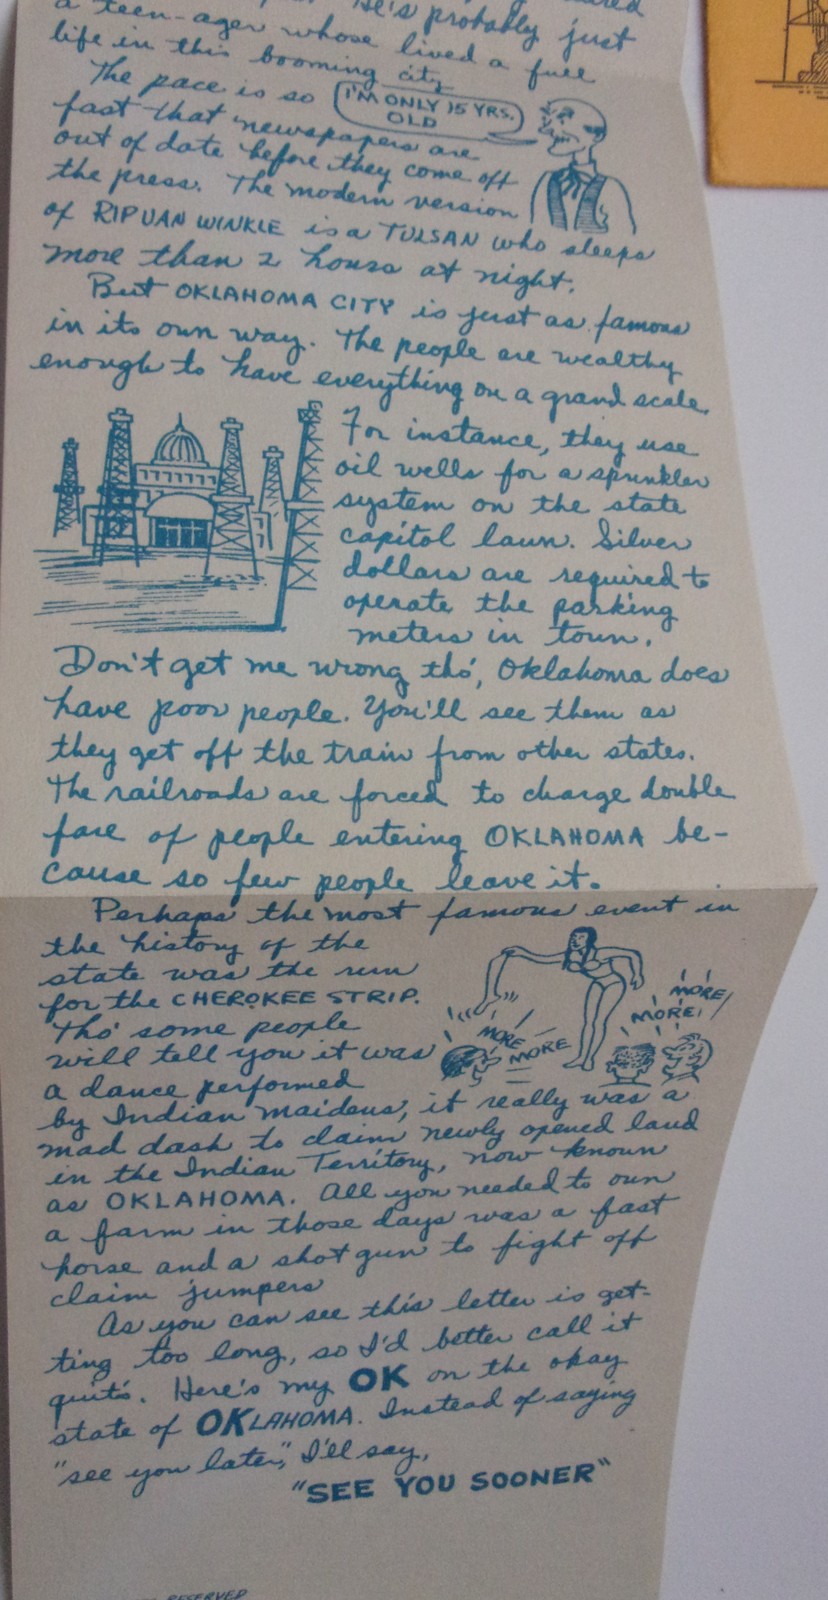 He's probably just
a teen-ager whose lived a full
life in this booming city
The pace is so
I'M ONLY 15 YRS.
OLD
fast that newspapers are
out of date before they come off
the press. The modern version
of RIP VAN WINKLE is a TULSAN who sleeps
more than 2 hours at night.
But OKLAHOMA CITY is just as famous
in its own way. The people are wealthy
enough to have everything on a grand scale.
For instance, they use
oil wells for a sprinkler
system on the state
capitol lawn. Silver
dollars are required to
operate the parking
meters in town.
Don't get me wrong tho', Oklahoma does
have poor people. You'll see them as
they get off the train from other states.
The railroads are forced to charge double
fare of people entering OKLAHOMA be-
cause so few people leave it.
Perhaps the most famous event in
the history of the
state was the run
for the CHEROKEE STRIP.
Tho' some people
will tell you it was
a dance performed
MORE MORE
MORE! MORE!
by Indian maidens, it really was a
mad dash to claim newly opened land
in the Indian Territory, now known
as OKLAHOMA. All you needed to own
a farm in those days was a fast
horse and a shot gun to fight off
claim jumpers
As you can see this letter is get-
ting too long, so I'd better call it
quits. Here's my OK on the okay
state of OKLAHOMA. Instead of saying
"see you later," I'll say,
"SEE YOU SOONER"
RESERVED